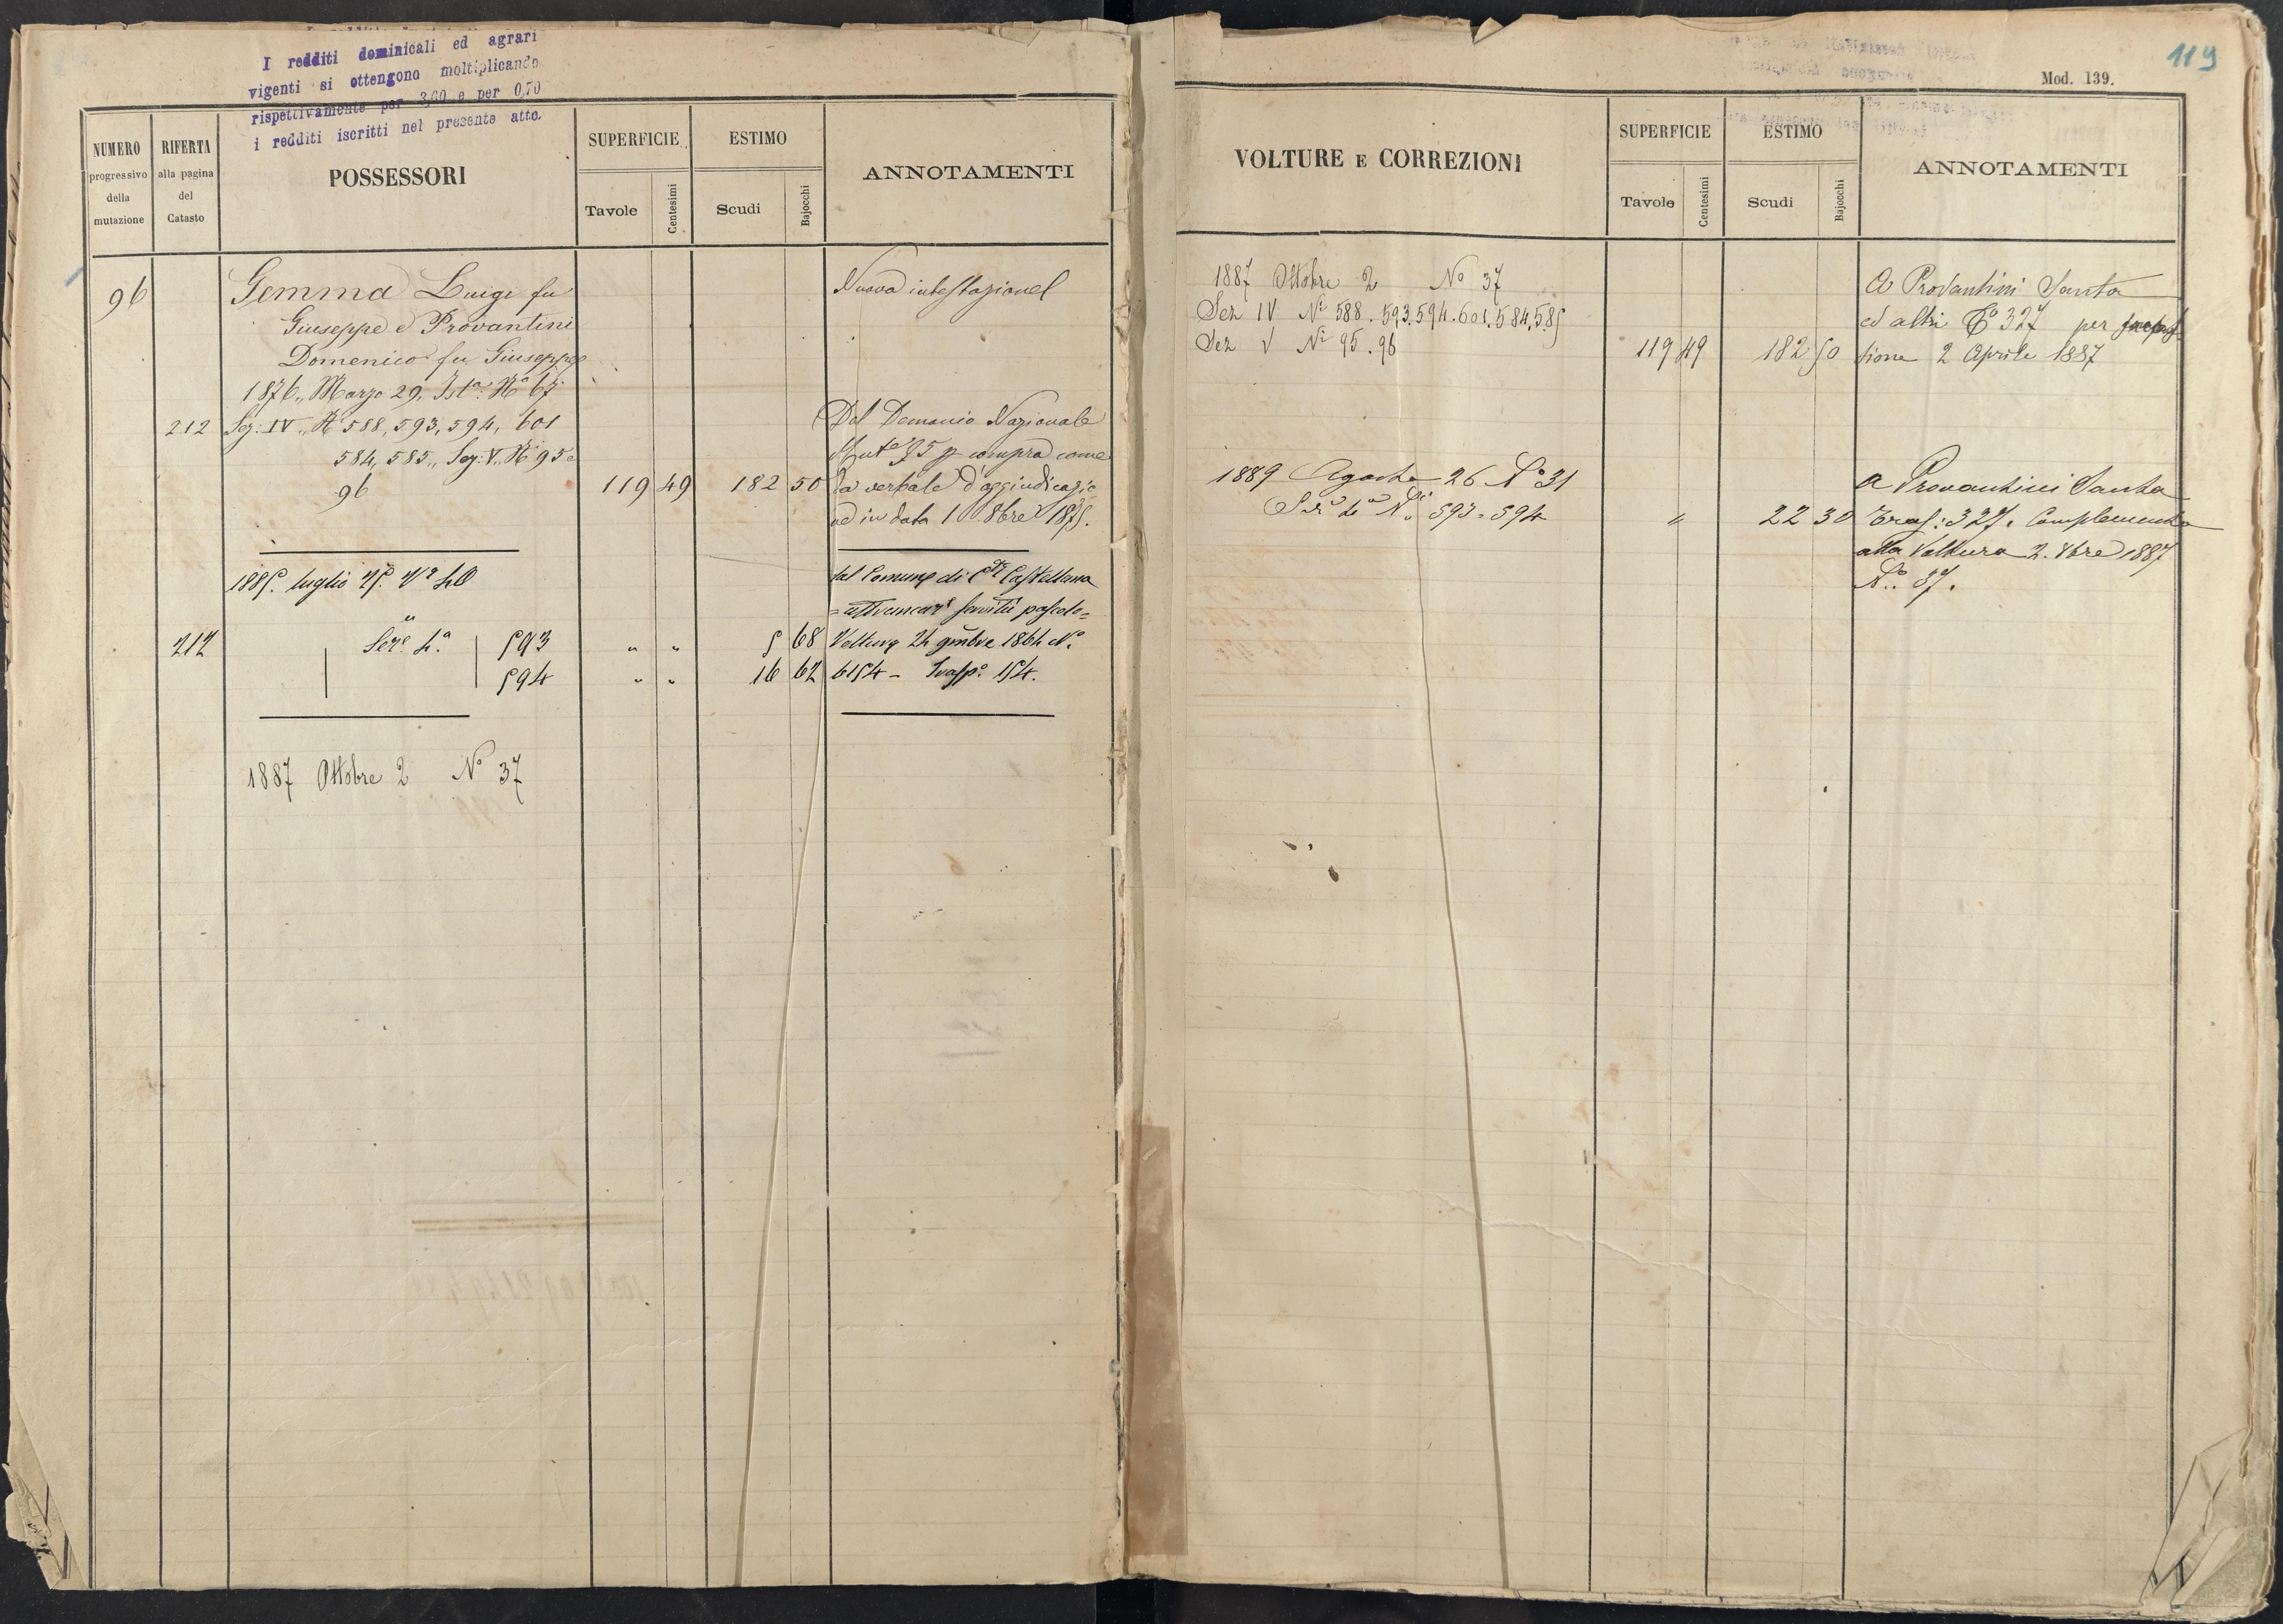 I redditi dominicali ed agrari
vigenti si ottengono moltiplicando
rispettivamente per 3,60 e per 0,70
i redditi iscritti nel presente atto.
NUMERO progressivo della mutazione
RIFERTA alla pagina del Catasto
POSSESSORI
SUPERFICIE
Tavole Centesimi
ESTIMO
Scudi Bajocchi
ANNOTAMENTI
96 Gemma Luigi fu Nuova intestazione
Giuseppe e Provantini
Domenico fu Giuseppe
1876,, Marzo 29, Ist.a N.o 67
212 Sez: IV,, N.i 588, 593, 594, 601 Dal Demanio Nazionale
584, 585,, Sez: V,, N.i 95 e compra come
96 119 49 182 50 da verbale d'aggiudicazio
ne in data 1875.
1885. luglio 25. N.o 40 dal Comune di C.ta Castellana
= servitù pascolo =
212 Sez.e 4.a 593 " " 5 68 Voltura 24 9mbre 1864 N.o
594 " " 16 62 6154 - Trasp.o 154.
1887 Ottobre 2 N.o 37
119
Mod. 139.
VOLTURE E CORREZIONI
SUPERFICIE
Tavole Centesimi
ESTIMO
Scudi Bajocchi
ANNOTAMENTI
1887 Ottobre 2 N.o 37 A Provantini Santa
Sez IV N.i 588. 593. 594. 601. 584. 585 ed altri T.o 327 per
Sez V N.i 95. 96 119 49 182 50 sione 2 Aprile 1887
1889 Agosto 26 N.o 31 A Provantini Santa
Sez.e 4.a N.i 593. 594 " 22 30 Trasp: 327. Complemento
alla Voltura 2. 8bre 1887
N.o 37.